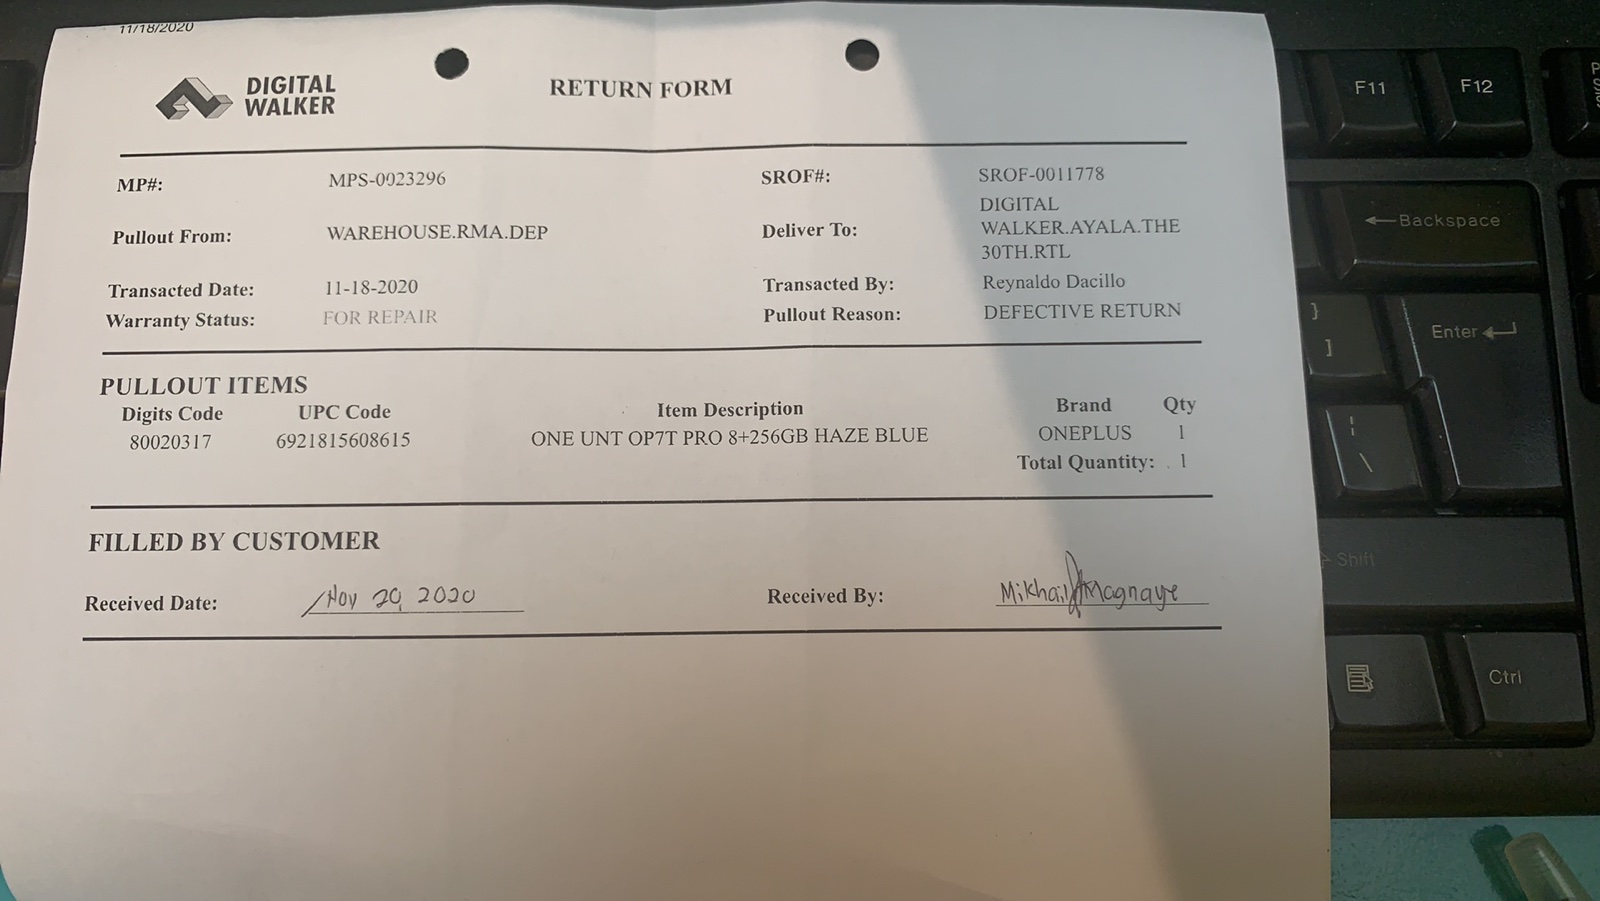 11/18/2020
DIGITAL
WALKER
RETURN FORM
MP#: MPS-0023296 SROF#: SROF-0011778
Pullout From: WAREHOUSE.RMA.DEP Deliver To: DIGITAL
WALKER.AYALA.THE
30TH.RTL
Transacted Date: 11-18-2020 Transacted By: Reynaldo Dacillo
Warranty Status: FOR REPAIR Pullout Reason: DEFECTIVE RETURN
PULLOUT ITEMS
Digits Code UPC Code Item Description Brand Qty
80020317 6921815608615 ONE UNT OP7T PRO 8+256GB HAZE BLUE ONEPLUS 1
Total Quantity: 1
FILLED BY CUSTOMER
Received Date: Nov 20, 2020 Received By: Mikhail Magnaye
F11 F12
Backspace
}
]
Enter
¦
\
Shift
Ctrl